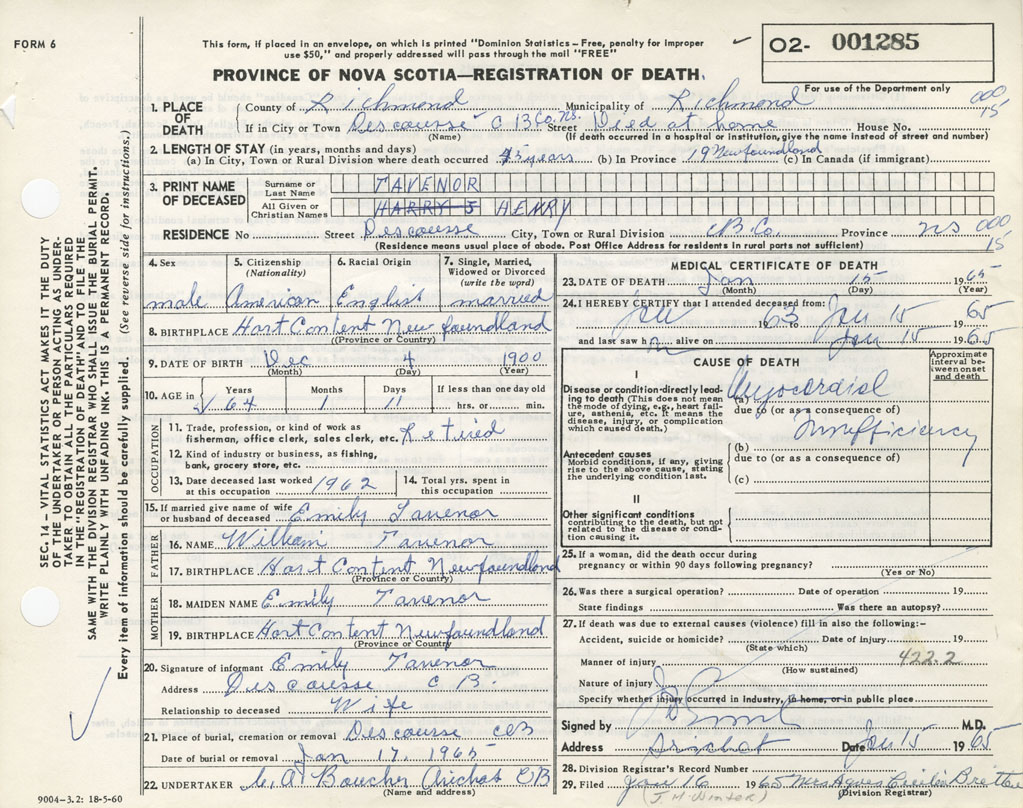 FORM 6
This form, if placed in an envelope, on which is printed "Dominion Statistics – Free, penalty for improper
use $50," and properly addressed will pass through the mail "FREE"
O2- 001285
For use of the Department only
PROVINCE OF NOVA SCOTIA—REGISTRATION OF DEATH
000
15
1. PLACE OF DEATH
County of Richmond Municipality of Richmond
If in City or Town Descousse C B Co. NS. Street Died at home House No.
(Name) (If death occurred in a hospital or institution, give the name instead of street and number)
2. LENGTH OF STAY (in years, months and days)
(a) In City, Town or Rural Division where death occurred 45 years (b) In Province 19 Newfoundland (c) In Canada (if immigrant)
3. PRINT NAME OF DECEASED
Surname or Last Name TAVENOR
All Given or Christian Names HARRY J HENRY
RESIDENCE No Street Descousse City, Town or Rural Division C.B.Co. Province NS 000
15
(Residence means usual place of abode. Post Office Address for residents in rural parts not sufficient)
4. Sex
male
5. Citizenship (Nationality)
American
6. Racial Origin
English
7. Single, Married, Widowed or Divorced (write the word)
married
8. BIRTHPLACE Hart Content Newfoundland
(Province or Country)
9. DATE OF BIRTH Dec 4 1900
(Month) (Day) (Year)
10. AGE in Years Months Days If less than one day old
64 1 11 hrs. or min.
OCCUPATION
11. Trade, profession, or kind of work as
fisherman, office clerk, sales clerk, etc. Retired
12. Kind of industry or business, as fishing,
bank, grocery store, etc.
13. Date deceased last worked
at this occupation 1962
14. Total yrs. spent in
this occupation
15. If married give name of wife
or husband of deceased Emily Tavenor
FATHER
16. NAME William Tavenor
17. BIRTHPLACE Hart Content Newfoundland
(Province or Country)
MOTHER
18. MAIDEN NAME Emily Tavenor
19. BIRTHPLACE Hart Content Newfoundland
(Province or Country)
20. Signature of informant Emily Tavenor
Address Descousse C B.
Relationship to deceased Wife
21. Place of burial, cremation or removal Descousse CB
Date of burial or removal Jan 17, 1965
22. UNDERTAKER C. A. Boucher Arichat CB
(Name and address)
MEDICAL CERTIFICATE OF DEATH
23. DATE OF DEATH Jan 15 1965
(Month) (Day) (Year)
24. I HEREBY CERTIFY that I attended deceased from:
Jan 1963 Jan 15 1965
and last saw h m alive on Jan 15 1965
CAUSE OF DEATH
Approximate interval between onset and death
I
Disease or condition-directly leading to death (This does not mean the mode of dying, e.g., heart failure, asthenia, etc. It means the disease, injury, or complication which caused death.)
(a) Myocardial
due to (or as a consequence of)
Insufficiency
Antecedent causes
Morbid conditions, if any, giving rise to the above cause, stating the underlying condition last.
(b)
due to (or as a consequence of)
(c)
II
Other significant conditions
contributing to the death, but not related to the disease or condition causing it.
25. If a woman, did the death occur during
pregnancy or within 90 days following pregnancy?
(Yes or No)
26. Was there a surgical operation? Date of operation 19
State findings Was there an autopsy?
27. If death was due to external causes (violence) fill in also the following:–
Accident, suicide or homicide? Date of injury 19
(State which)
Manner of injury 422.2
(How sustained)
Nature of injury
Specify whether injury occurred in industry, in home, or in public place
Signed by M.D.
Address Arichat Date Jan 15 1965
28. Division Registrar's Record Number
29. Filed Jan 16 1965 Mrs Agnes Cecilia Breton
(J.M. Winter) (Division Registrar)
SEC. 14 – VITAL STATISTICS ACT MAKES IT THE DUTY
OF THE UNDERTAKER OR PERSON ACTING AS UNDER-
TAKER TO OBTAIN ALL THE PARTICULARS REQUIRED
IN THE "REGISTRATION OF DEATH" AND TO FILE THE
SAME WITH THE DIVISION REGISTRAR WHO SHALL ISSUE THE BURIAL PERMIT.
WRITE PLAINLY WITH UNFADING INK. THIS IS A PERMANENT RECORD.
Every item of information should be carefully supplied. (See reverse side for instructions.)
9004-3.2: 18-5-60